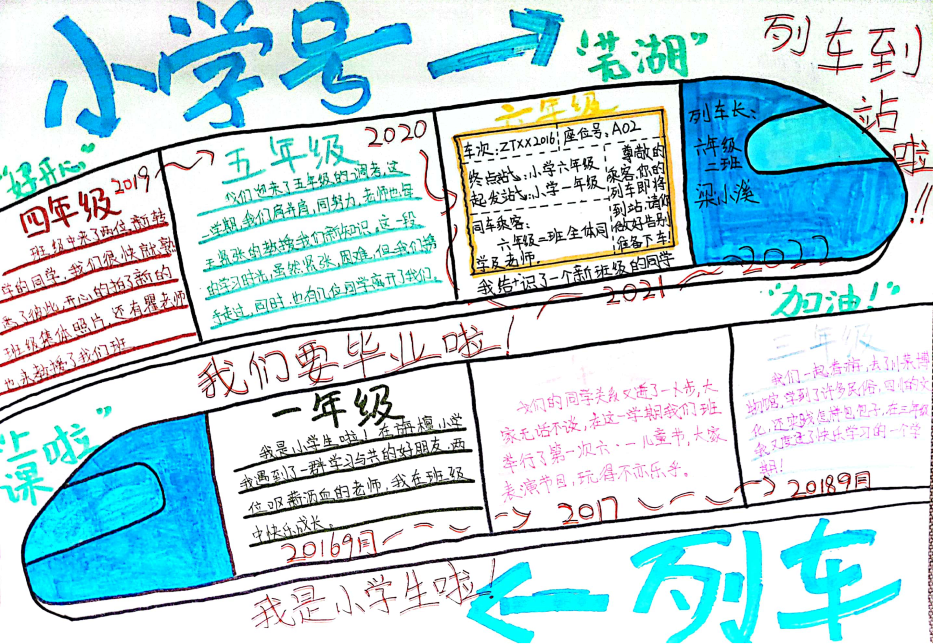 小学号
"芜湖"
列车到
站
啦!!
"好开心"
四年级
2019
班级中来了两位新转
来的同学，我们很快就熟
悉了彼此，开心的拍了新的
班级集体照片，还有瞿老师
也来教授了我们班
五年级
2020
我们迎来了五年级的
学期，我们肩并肩，同努力，老师也每
天紧张的教授我们新知识，这一段
的学习时光，虽然紧张、困难，但我们携
手走过，同时，也有几位同学离开了我们
六年级
车次:ZTXX2016
座位号:A02
终点站:小学六年级
起发站:小学一年级
同车乘客:
六年级二班全体同
学及老师。
尊敬的
乘客,你的
列车即将
到站,请你
做好告别
准备下车!
我结识了一个新班级的同学
2021
2022
列车长:
六年级
二班
梁小溪
"加油!"
我们要毕业啦!
"上
课啦"
一年级
我是小学生啦!在
我遇到了一群学习与共的好朋友,两
位呕心沥血的老师,我在班级
中快乐成长。
2016 9月
我们的同学关系又进了一大步,大
家无话不说,在这一学期我们班
举行了第一次六一儿童节,大家
表演节目,玩得不亦乐乎。
2017
三年级
我们一起春游,去了
物馆,学到了许多民俗、
化,
2018 9月
我是小学生啦!
列车